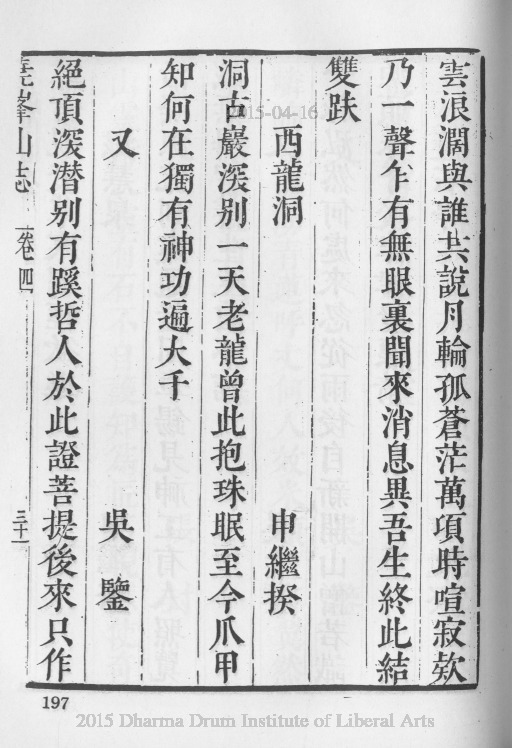 雲浪濶與誰共說月輪孤蒼茫萬項時喧寂欸
乃一聲乍有無眼裏聞來消息異吾生終此結
雙趺
西龍洞 申繼揆
洞古巖深別一天老龍曾此抱珠眠至今爪甲
知何在獨有神功遍大千
又 吳鑒
絕頂深潛別有蹊哲人於此證菩提後來只作
峯山志 卷四 三十一
197
2015-04-16
2015 Dharma Drum Institute of Liberal Arts